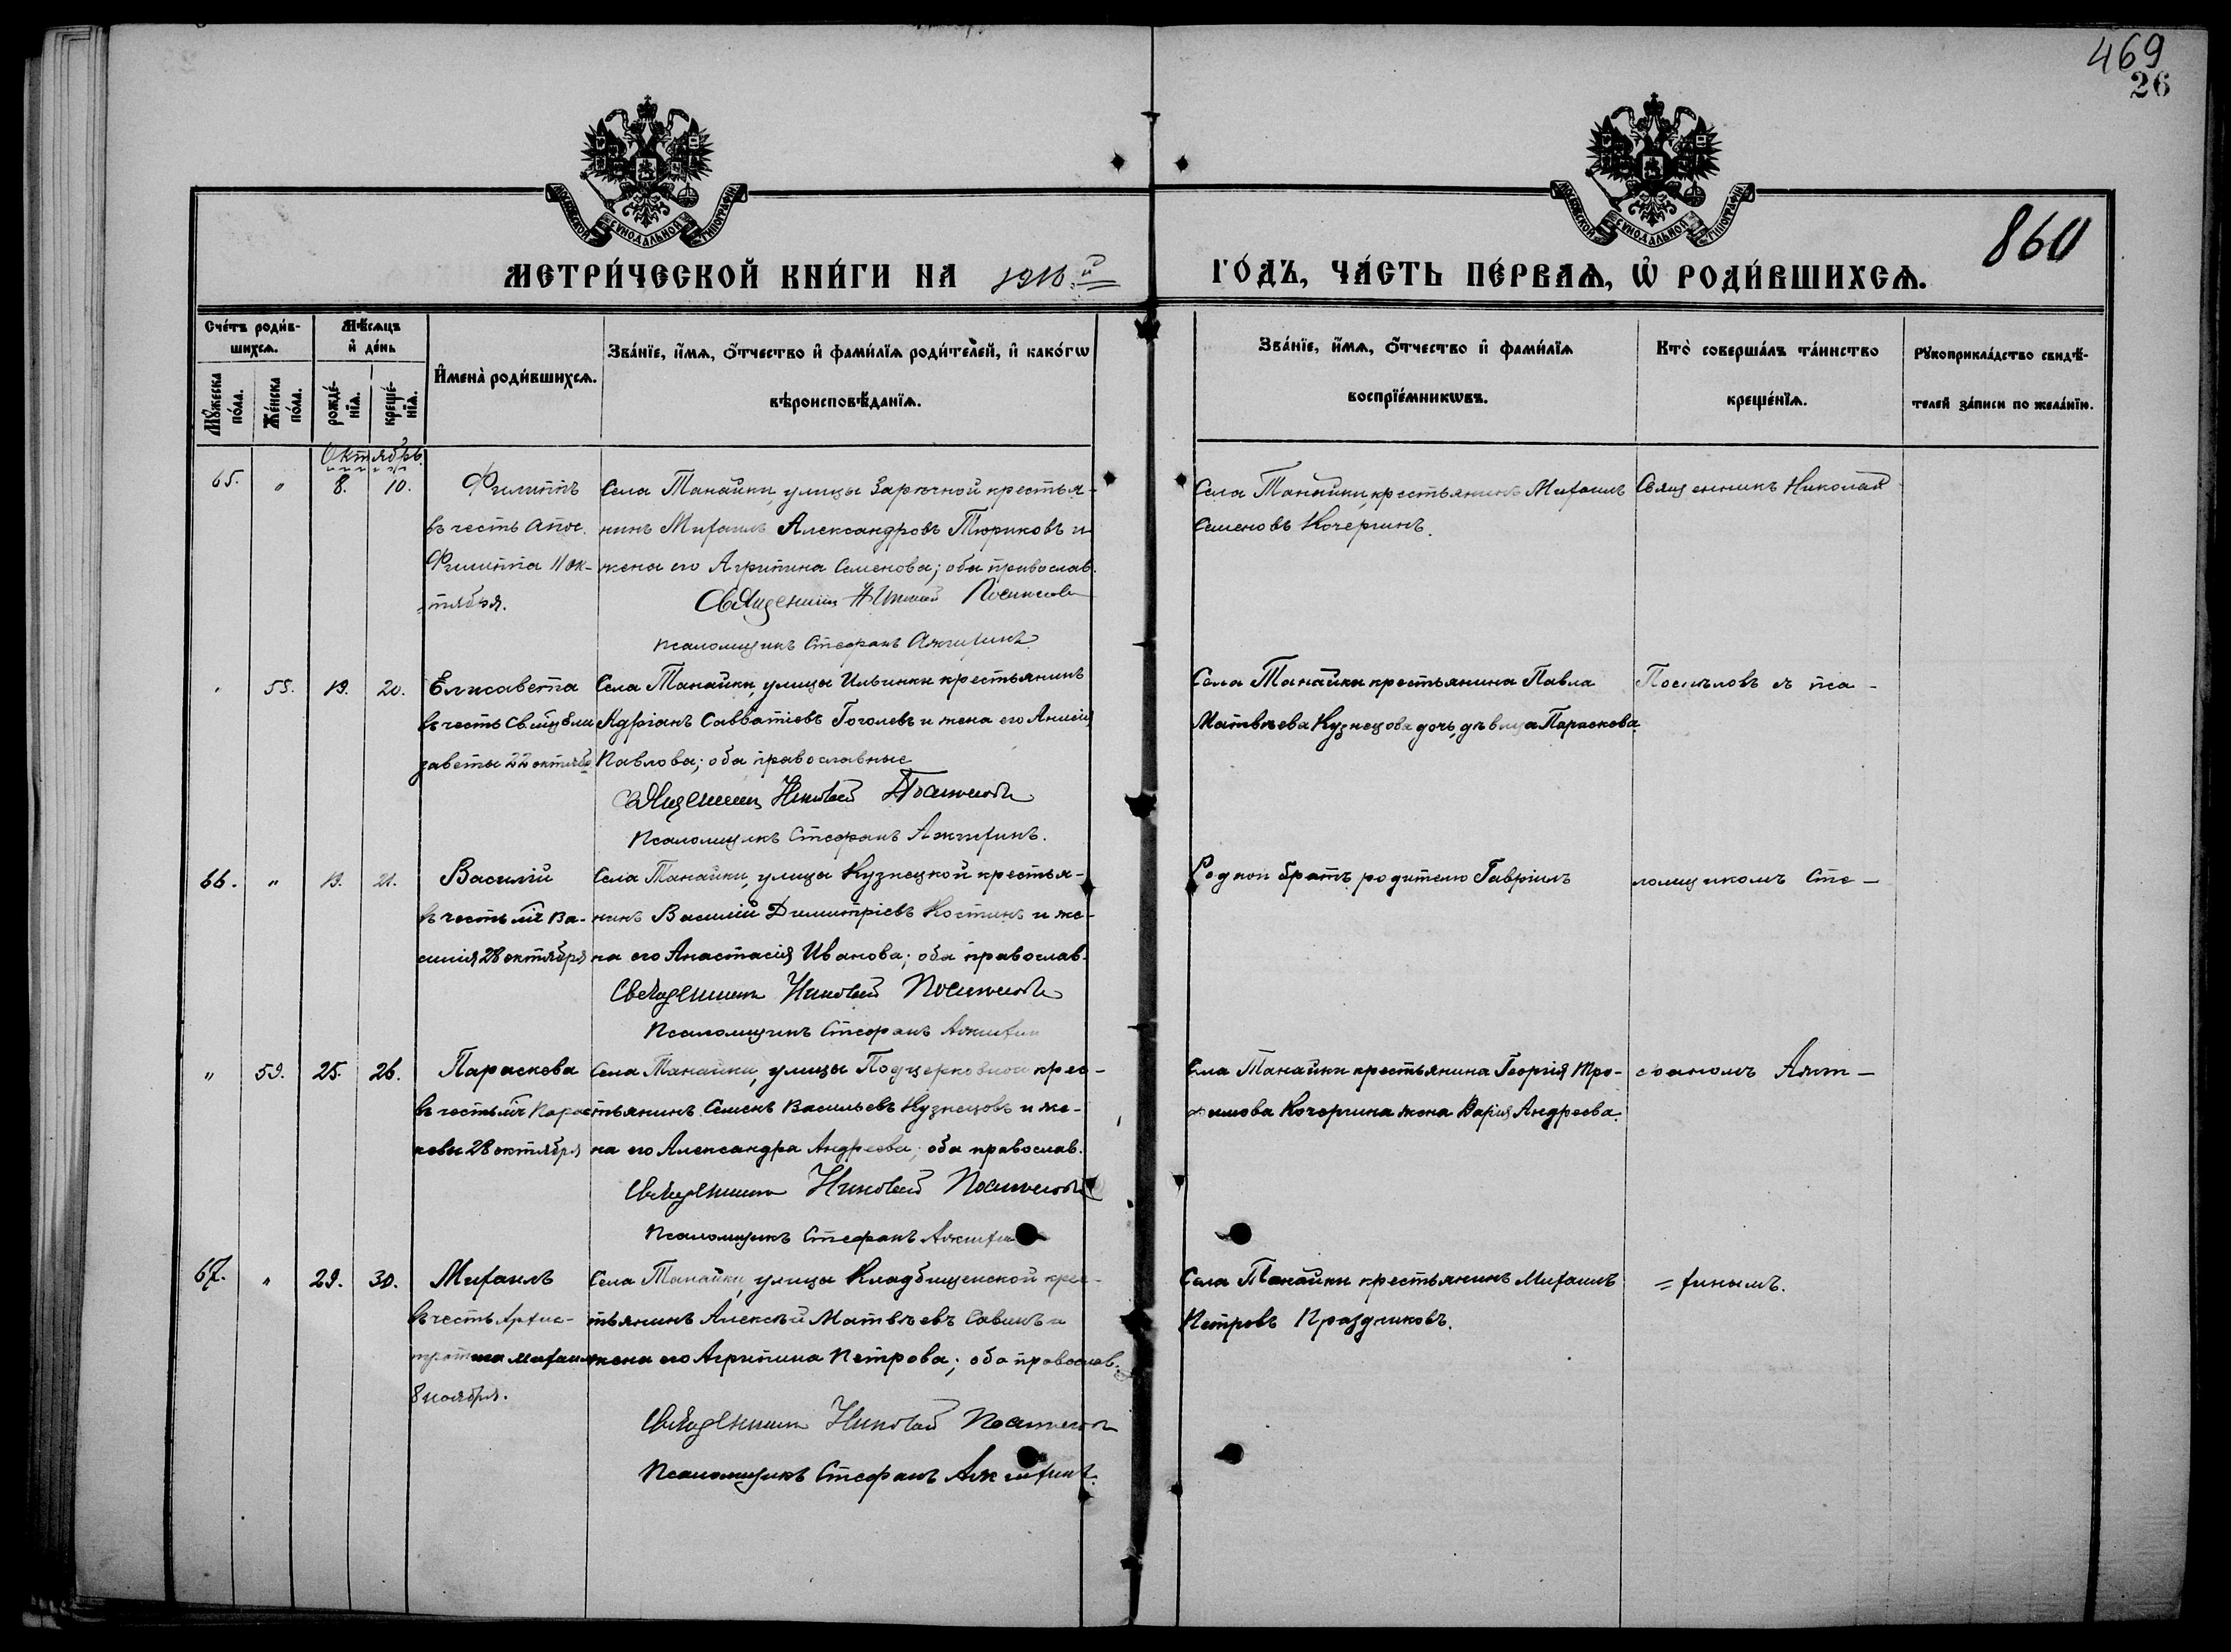 469
26
860
МОСКОВСКОЙ СѴНОДАЛЬНОЙ ТИПОГРАФІИ
МОСКОВСКОЙ СѴНОДАЛЬНОЙ ТИПОГРАФІИ
МЕТРИ́ЧЕСКОЙ КНИ́ГИ НА 1916й ГО́ДЪ, ЧА́СТЬ ПЕ́РВАѦ, Ѽ РОДИ́ВШИХСѦ.
Сче́тъ роди́в-
шихсѧ.
Мꙋ́жеска
по́ла.
Же́нска
по́ла.
Мѣ́сѧцъ
и҆ де́нь
рожде́-
нїѧ.
креще́-
нїѧ.
И҆мена̀ роди́вшихсѧ.
Зва́нїе, и҆́мѧ, ѻ҆́тчество и҆ фами́лїѧ роди́телей, и҆ како́гѡ
вѣроисповѣ́данїѧ.
Зва́нїе, и҆́мѧ, ѻ҆́тчество и҆ фами́лїѧ
воспрїе́мникѡвъ.
Кто̀ соверша́лъ та́инство
креще́нїѧ.
Рꙋкоприкла́дство свидѣ́-
телей за́писи по жела́нїю.
Октябрь.
65. " 8. 10.
Филиппъ
въ честь апос.
Филиппа 11 ок-
тября.
Села Танайки, улицы Заречной крестья-
нинъ Михаилъ Александровъ Тюриковъ и
жена его Агрипина Семенова; оба православ.
Священникъ Николай Поспеловъ
Псаломщикъ Стефанъ Ажгихинъ
Села Танайки, крестьянинъ Михаилъ
Семеновъ Кочергинъ.
Священникъ Николай
" 58. 19. 20.
Елисавета
въ честь Св. мц Ели
заветы 22 октябр
Села Танайки, улицы Ильинки крестьянинъ
Адріанъ Савватіевъ Гоголевъ и жена его Анисія
Павлова; оба православные
Священникъ Николай Поспеловъ
Псаломщикъ Стефанъ Ажгихинъ.
Села Танайки крестьянина Павла
Матвѣева Кузнецова дочь, дѣвица Параскева.
Поспѣловъ съ пса-
66. " 19. 21.
Василій
въ честь мч Ва-
силія 28 октября
Села Танайки, улицы Кузнецкой крестья-
нинъ Василій Димитріевъ Костинъ и же-
на его Анастасія Иванова; оба православ.
Священникъ Николай Поспеловъ
Псаломщикъ Стефанъ Ажгихин
Родной братъ родителю Гавріилъ
ломщикомъ Сте-
" 59. 25. 26.
Параскева
въ честь мч Парас
кевы 28 октября
Села Танайки, улицы Подцерковной крес-
тьянинъ Семенъ Васильевъ Кузнецовъ и же-
на его Александра Андреева; оба православ.
Священникъ Николай Поспеловъ
Псаломщикъ Стефанъ Ажгихи
Села Танайки крестьянина Георгія Тро-
фимова Кочергина жена Дарія Андреева.
фаномъ Ажги-
67. " 29. 30.
Михаилъ
въ честь Архис-
тратига Михаил
8 ноября.
Села Танайки, улицы Кладбищенской крес-
тьянинъ Алексѣй Матвѣевъ Савинъ и
жена его Агрипина Петрова; оба православ.
Священникъ Николай Поспеловъ
Псаломщикъ Стефанъ Ажгихинъ.
Села Танайки крестьянинъ Михаилъ
Петровъ Праздниковъ.
=хинымъ.